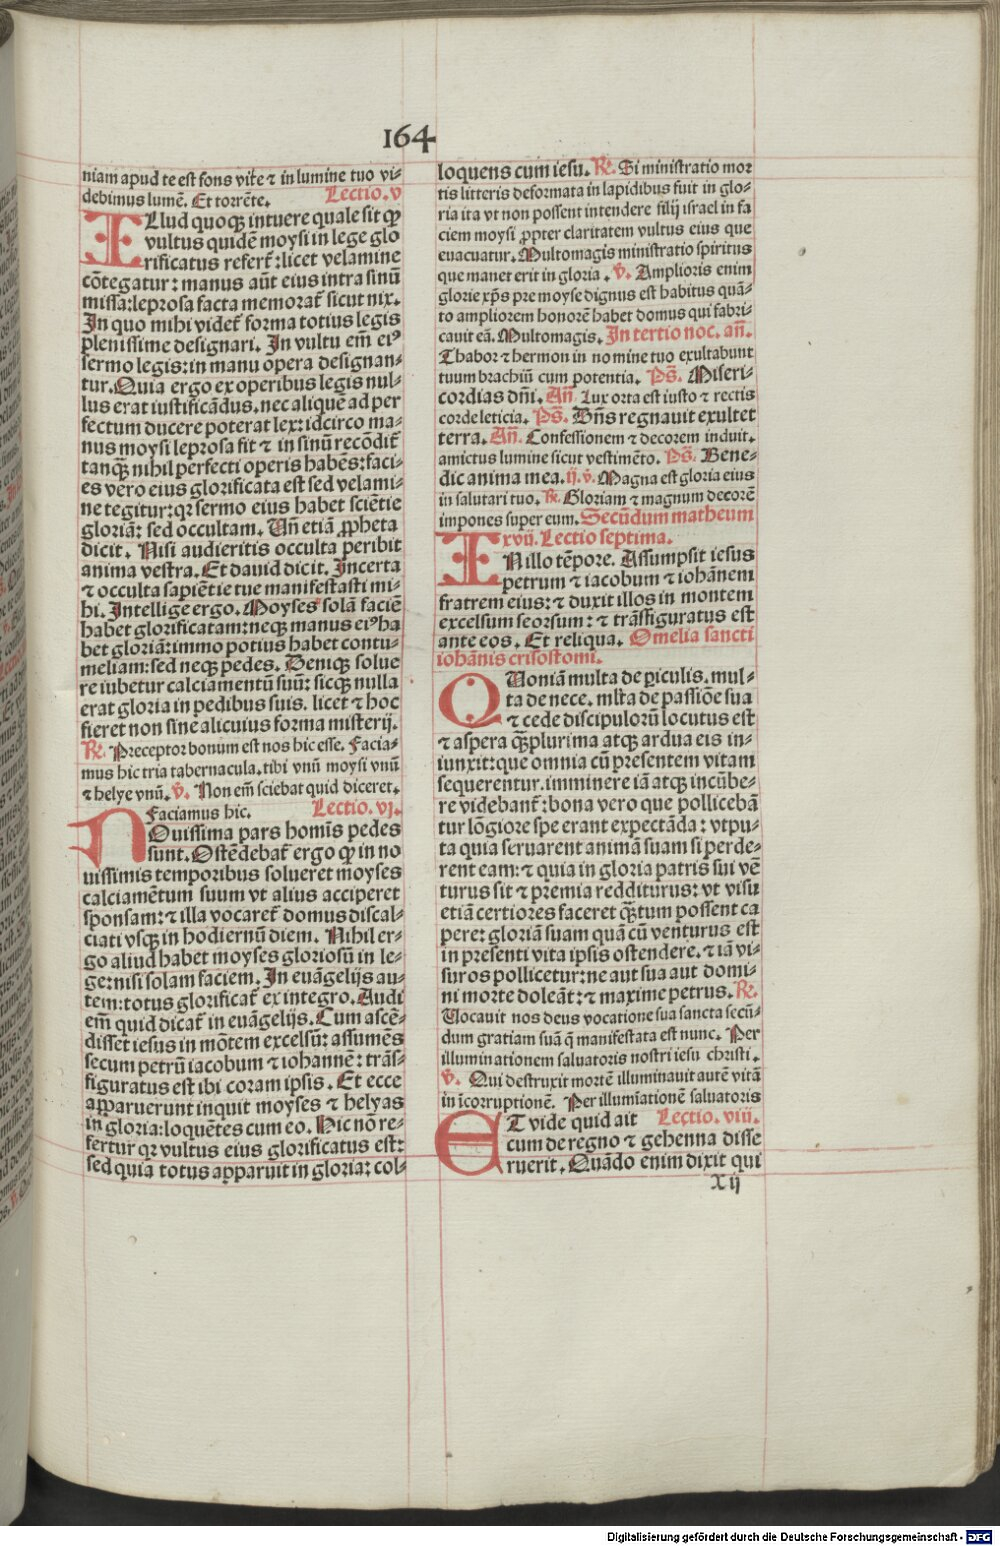 164
niam apud te est fons vite ⁊ in lumine tuo vi-
debimus lumē. Et torrēte. Lectio. v
ILlud quoqꝫ intuere quale sit ꝙ
vultus quidē moysi in lege glo
rificatus refert̄: licet velamine
cōtegatur: manus aūt eius intra sinū
missa: leprosa facta memorat̄ sicut nix.
In quo mihi videt̄ forma totius legis
plenissime designari. In vultu em̄ eiꝰ
sermo legis: in manu opera designan-
tur. Quia ergo ex operibus legis nul-
lus erat iustificādus. nec aliquē ad per
fectum ducere poterat lex: idcirco ma-
nus moysi leprosa fit ⁊ in sinū recōdit̄
tanqꝫ nihil perfecti operis habēs: faci-
es vero eius glorificata est sed velami-
ne tegitur: qꝛ sermo eius habet sciētie
gloriā: sed occultam. Vn̄ etiā ꝓpheta
dicit. Nisi audieritis occulta peribit
anima vestra. Et dauid dicit. Incerta
⁊ occulta sapiētie tue manifestasti mi-
hi. Intellige ergo. Moyses solā faciē
habet glorificatam: neqꝫ manus eiꝰ ha
bet gloriā: immo potius habet contu-
meliam: sed neqꝫ pedes. Deniqꝫ solue
re iubetur calciamentū suū: sicqꝫ nulla
erat gloria in pedibus suis. licet ⁊ hoc
fieret non sine alicuius forma misterij.
R̄. Preceptor bonum est nos hic esse. Facia-
mus hic tria tabernacula. tibi vnū moysi vnū
⁊ helye vnū. v̄. Non em̄ sciebat quid diceret.
Faciamus hic. Lectio. vj.
NOuissima pars homīs pedes
sunt. Ostēdebat̄ ergo ꝙ in no
uissimis temporibus solueret moyses
calciamētum suum vt alius acciperet
sponsam: ⁊ illa vocaret̄ domus discal-
ciati vsqꝫ in hodiernū diem. Nihil er-
go aliud habet moyses gloriosū in le-
ge: nisi solam faciem. In euāgelijs au-
tem: totus glorificat̄ ex integro. Audi
em̄ quid dicat̄ in euāgelijs. Cum ascē-
disset iesus in mōtem excelsū: assumēs
secum petrū iacobum ⁊ iohannē: trās-
figuratus est ibi coram ipsis. Et ecce
apparuerunt inquit moyses ⁊ helyas
in gloria: loquētes cum eo. Hic nō re-
fertur qꝛ vultus eius glorificatus est:
sed quia totus apparuit in gloria: col-
loquens cum iesu. R̄. Si ministratio mor
tis litteris deformata in lapidibus fuit in glo-
ria ita vt non possent intendere filij israel in fa
ciem moysi ꝓpter claritatem vultus eius que
euacuatur. Multomagis ministratio spiritus
que manet erit in gloria. v̄. Amplioris enim
glorie xp̄s pre moyse dignus est habitus quā-
to ampliorem honorē habet domus qui fabri-
cauit eā. Multomagis. In tertio noc. an̄.
Thabor ⁊ hermon in nomine tuo exultabunt
tuum brachiū cum potentia. Ps̄. Miseri-
cordias dn̄i. An̄. Lux orta est iusto ⁊ rectis
corde leticia. Ps̄. Dn̄s regnauit exultet
terra. An̄. Confessionem ⁊ decorem induit.
amictus lumine sicut vestimēto. Ps̄. Bene-
dic anima mea. ij. v̄. Magna est gloria eius
in salutari tuo. R̄. Gloriam ⁊ magnum decorē
impones super eum. Secūdum matheum
xvij. Lectio septima.
IN illo tēpore. Assumpsit iesus
petrum ⁊ iacobum ⁊ iohānem
fratrem eius: ⁊ duxit illos in montem
excelsum seorsum: ⁊ trāsfiguratus est
ante eos. Et reliqua. Omelia sancti
iohānis crisostomi.
QUoniā multa de ꝑiculis. mul-
ta de nece. ml̄ta de passiōe sua
⁊ cede discipulorū locutus est
⁊ aspera qꝫplurima atqꝫ ardua eis in-
iunxit: que omnia cū presentem vitam
sequerentur. imminere iā atqꝫ incūbe-
re videbant̄: bona vero que pollicebā
tur lōgiore spe erant expectāda: vtpu-
ta quia seruarent animā suam si perde-
rent eam: ⁊ quia in gloria patris sui vē
turus sit ⁊ premia redditurus: vt visu
etiā certiores faceret qꝫtum possent ca
pere: gloriā suam quā cū venturus est
in presenti vita ipsis ostendere. ⁊ iā vi-
suros pollicetur: ne aut sua aut domi-
ni morte doleāt: ⁊ maxime petrus. R̄.
Uocauit nos deus vocatione sua sancta secū-
dum gratiam suā q̄ manifestata est nunc. Per
illuminationem saluatoris nostri iesu christi.
v̄. Qui destruxit mortē illuminauit autē vitā
in īcorruptionē. Per illumīationē saluatoris
ET vide quid ait Lectio. viij.
cum de regno ⁊ gehenna disse
ruerit. Quādo enim dixit qui
X ij
Digitalisierung gefördert durch die Deutsche Forschungsgemeinschaft - DFG